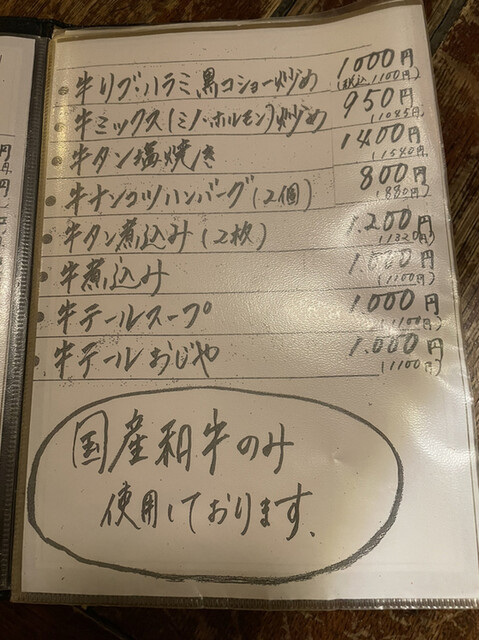 牛リブ・ハラミ黒コショー炒め 1000円
(税込1100円)
牛ミックス(ミノ・ホルモン)炒め 950円
(1045円)
牛タン塩焼き 1400円
(1540円)
牛ナンコツハンバーグ(2個) 800円
(880円)
牛タン煮込み(2枚) 1.200円
(1320円)
牛煮込み 1.000円
(1100円)
牛テールスープ 1.000円
(1100円)
牛テールおじや 1.000円
(1100円)
国産和牛のみ
使用しております。